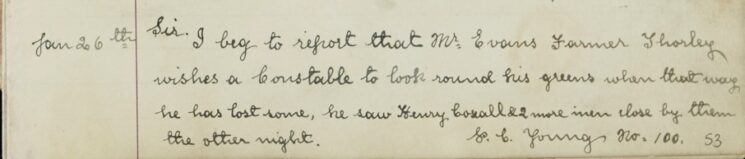 Jan 26th Sir. I beg to report that Mr. Evans Farmer Thorley
wishes a Constable to look round his greens when that way
he has lost some, he saw Henry Coxall & 2 more men close by them
the other night. P. C. Young No. 100. 53